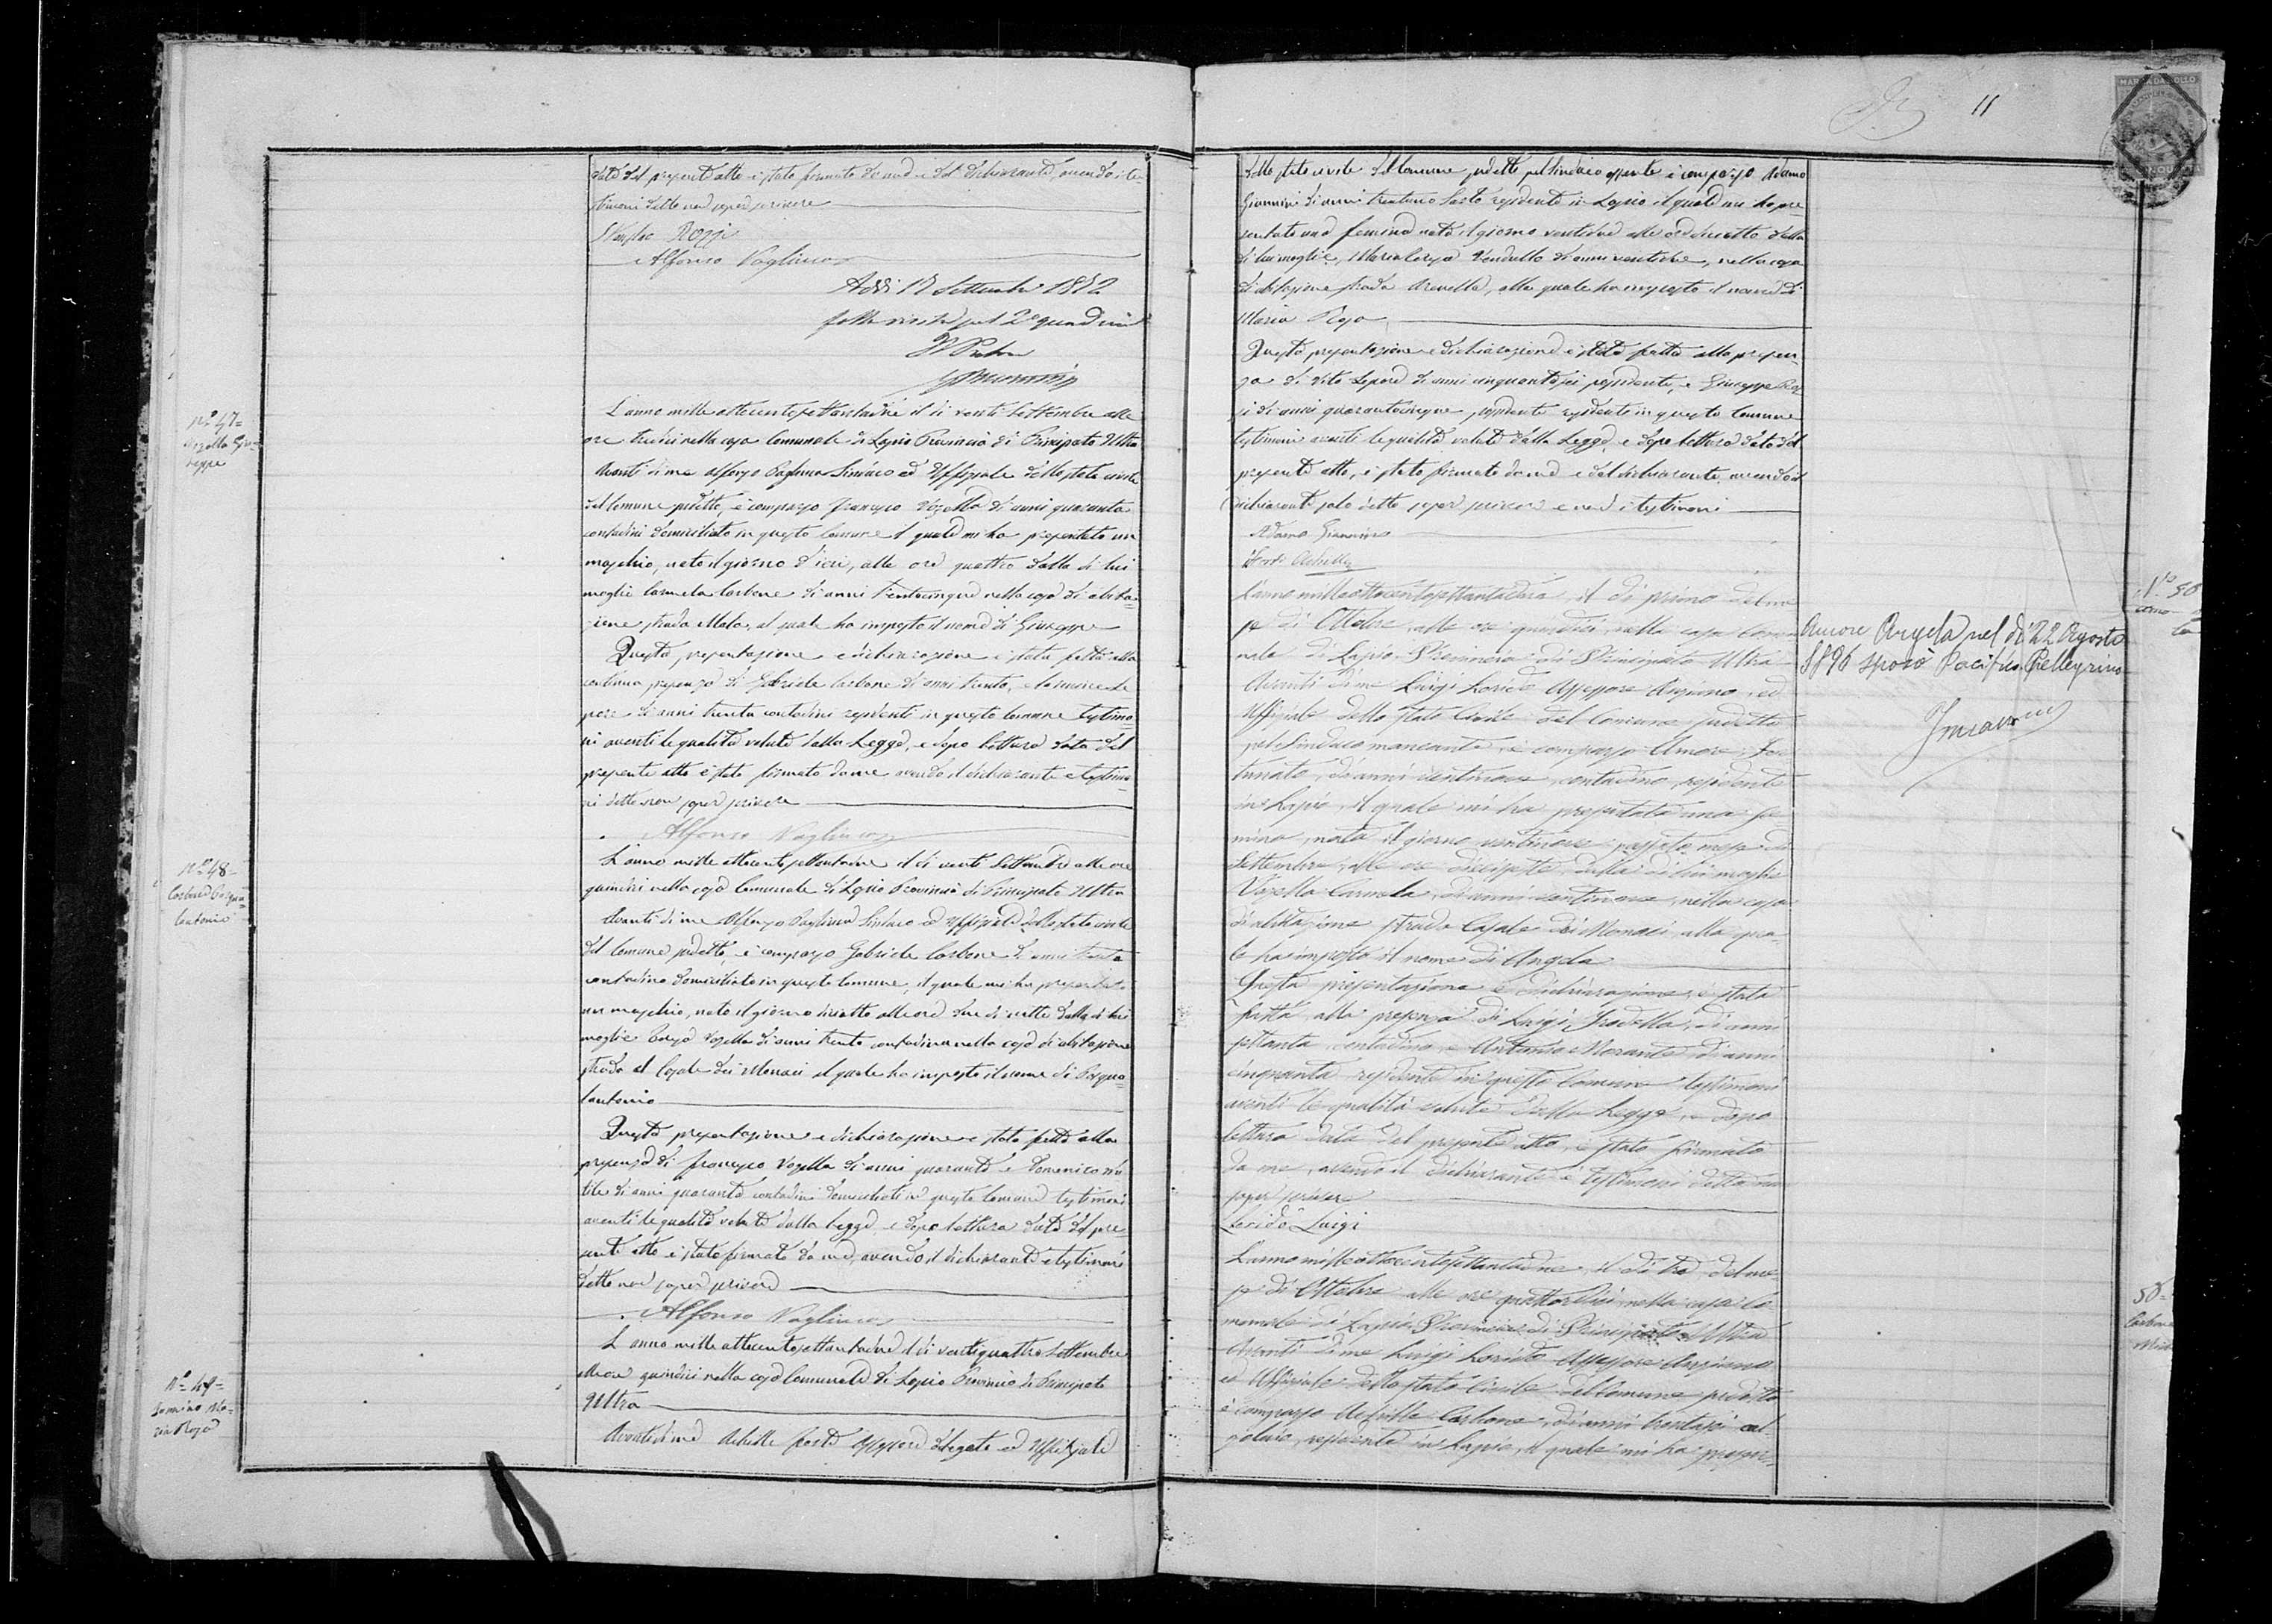 data del presente atto è stato firmato da me e dal dichiarante avendo i te-
stimoni detto non saper scrivere
Rozzi
Alfonso Vagliuca
Addì 12 Settembre 1872
fatta visita pel 2° quadrim
Il Pretore
N° 47=
Vozzella Giu-
seppe
L'anno mille ottocentosettantadue il dì venti Settembre alle
ore tredici nella casa Comunale di Lapio Provincia di Principato Ultra
Avanti di me Alfonso Vagliuca Sindaco ed Uffiziale dello stato civile
del Comune sudetto, è comparso Francesco Vozzella di anni quaranta
contadino domiciliato in questo Comune il quale mi ha presentato un
maschio, nato il giorno d'ieri, alle ore quattro dalla di lui
moglie Carmela Carbone di anni trentacinque nella casa di abita-
zione strada Mala, al quale ha imposto il nome di Giuseppe
Questa presentazione e dichiarazione è stata fatta alla
continua presenza di Gabriele Carbone di anni trenta, e
di anni trenta contadini residenti in questo Comune testimo-
ni aventi le qualità volute dalla Legge, e dopo lettura data del
presente atto è stato firmato da me avendo il dichiarante e testimo-
ni detto non saper scrivere
Alfonso Vagliuca
N° 48=
Carbone Pasqua-
lantonio
L'anno mille ottocentosettantadue il dì venti Settembre alle ore
quindici nella casa Comunale di Lapio Provincia di Principato Ultra
Avanti di me Alfonso Vagliuca Sindaco ed Uffiziale dello stato civile
del Comune sudetto, è comparso Gabriele Carbone di anni trenta
contadino domiciliato in questo Comune, il quale mi ha presentato
un maschio, nato il giorno diciotto alle ore due di notte dalla di lui
moglie Vozzella di anni trenta contadina nella casa di abitazione
strada al Casale dei Monaci al quale ha imposto il nome di Pasqua-
lantonio
Questa presentazione e dichiarazione è stata fatta alla
presenza di Francesco Vozzella di anni quaranta e Domenico
di anni quaranta contadini domiciliati in questo Comune testimoni
aventi le qualità volute dalla Legge e dopo lettura data del pre-
sente atto è stato firmato da me, avendo il dichiarante e testimoni
detto non saper scrivere
Alfonso Vagliuca
N° 49=
Giannino Ma-
ria Rosa
L'anno mille ottocentosettantadue il dì ventiquattro Settembre
alle ore quindici nella casa Comunale di Lapio Provincia di Principato
Ultra
Avanti di me Achille Forte Assessore delegato ed Uffiziale
11
MARCA DA BOLLO
dello stato civile del Comune sudetto pel Sindaco assente è comparso Adamo
Giannino di anni trentuno Sarto residente in Lapio il quale mi ha pre-
sentato una femina nata il giorno ventidue alle ore diciotto dalla
di lui moglie, Maria Vendullo di anni ventitre, nella casa
di abitazione strada Arenella, alla quale ha imposto il nome di
Maria Rosa
Questa presentazione e dichiarazione è stata fatta alla presen-
za di Vito Lepore di anni cinquantasei residente, e Giuseppe
di anni quarantacinque residente in questo Comune
testimoni aventi le qualità volute dalla Legge, e dopo lettura data del
presente atto, è stato firmato da me e dal dichiarante avendo il
dichiarante solo detto saper scrivere e non i testimoni
Adamo Giannino
Forte Achille
N° 50
L'anno milleottocentosettantadue, il dì primo del me-
se di Ottobre alle ore quindici nella casa Comu-
nale di Lapio Provincia di Principato Ultra
Avanti di me Luigi Lorido Assessore Anziano, ed
Uffiziale dello stato Civile del Comune sudetto
pel Sindaco mancante, è comparso Amore For-
tunato, di anni ventinove contadino, residente
in Lapio, il quale mi ha presentata una fe-
mina, nata il giorno ventinove passato mese di
Settembre, alle ore diciassette dalla di lui moglie
Vozella Carmela, di anni ventinove, nella casa
di abitazione strada Casale dei Monaci, alla qua-
le ha imposto il nome di Angela
Questa presentazione e dichiarazione, è stata
fatta alla presenza di Luigi Iradella, di anni
settanta, contadino, e Antonio Morante di anni
cinquanta residente in questo Comune testimoni
aventi le qualità volute dalla Legge, e dopo
lettura data del presente atto, è stato firmato
da me, avendo il dichiarante e testimoni detto non
saper scrivere
Lorido Luigi
Amore Angela nel dì 22 Agosto
1896 sposò Pacifico Pellegrino
L'anno milleottocentosettantadue, il dì tre del me-
se di Ottobre alle ore quattordici nella casa Co-
munale di Lapio Provincia di Principato Ultra
Avanti di me Luigi Lorido Assessore Anziano
ed Uffiziale dello stato Civile del Comune sudetto
è comparso Achille Carbone, di anni trentasei cal-
zolaio, residente in Lapio, il quale mi ha presen-
Carbone